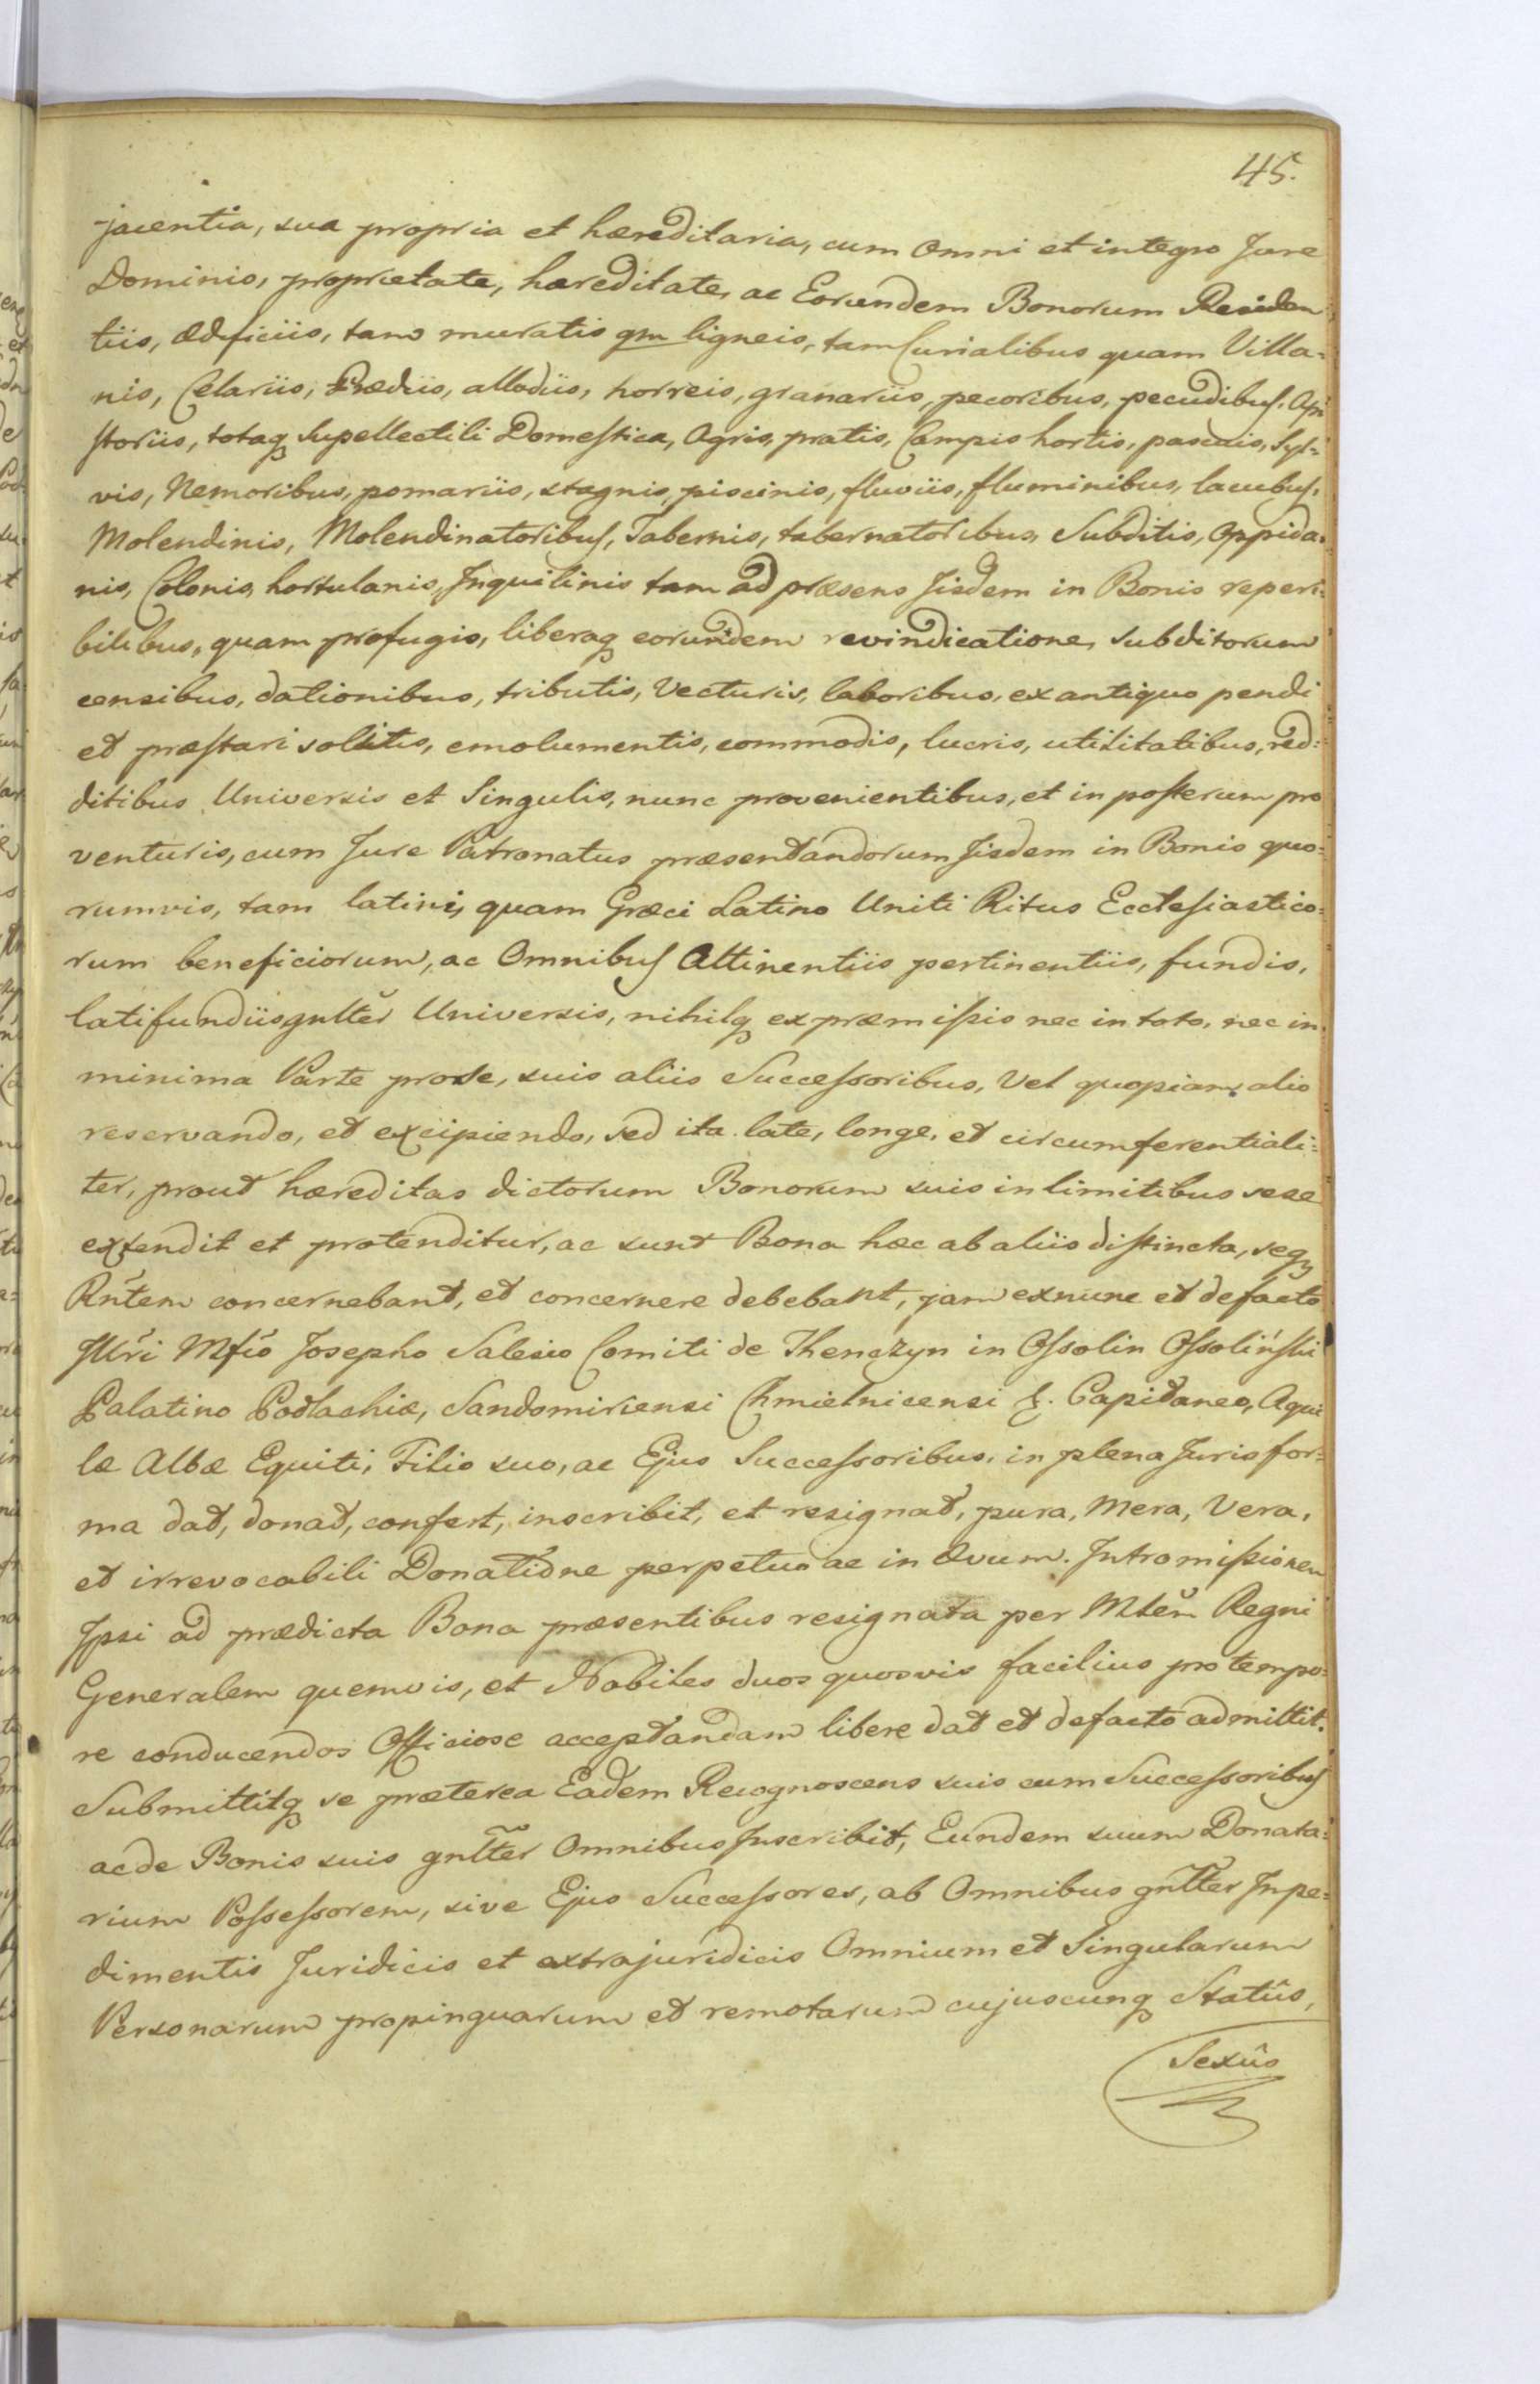 45.
jacentia, sua propria et hæreditaria, cum Omni et integro Jure
Dominio, proprietate, hæreditate, ac Eorundem Bonorum Residen
tiis, Ædificiis, tam muratis qm ligneis, tam Curialibus quam Villa=
nis, Celariis, Prædiis, allodiis, horreis, granariis, pecoribus, pecudibus, Api
storiis, totaq Supellectili Domestica, Agris, pratis, Campis hortis, pascuis, Syl=
vis, Nemoribus, pomariis, stagnis, piscinis, fluviis, fluminibus, lacubus,
Molendinis, Molendinatoribus, Tabernis, tabernatoribus, Subditis, Oppida=
nis, Colonis, hortulanis, Inquilinis tam ad præsens Iisdem in Bonis reperi=
bilibus, quam profugis, liberaq eorundem revindicatione, subditorum
censibus, dationibus, tributis, Vecturis, laboribus, ex antiquo pendi
et præstari solitis, emolumentis, commodis, lucris, utilitatibus, red=
ditibus Universis et Singulis, nunc provenientibus, et in posterum pro
venturis, cum Jure Patronatus præsentandorum Iisdem in Bonis quo=
rumvis, tam latini, quam Græci Latino Uniti Ritus Ecclesiastico=
rum beneficiorum, ac Omnibus Attinentiis pertinentiis, fundis,
latifundiis gnlter Universis, nihilq ex præmissis nec in toto, nec in
minima Parte pro se, suis aliis Successoribus, Vel quopiam alio
reservando, et excipiendo, sed ita late, longe, et circumferentiali=
ter, prout hæreditas dictorum Bonorum suis in limitibus sese
extendit et protenditur, ac sunt Bona hæc ab aliis distincta, seq
Rntem concernebant, et concernere debebant, jam exnunc et defacto
Illri Mfco Josepho Salesio Comiti de Thenczyn in Ossolin Ossoliński
Palatino Podlachiæ, Sandomiriensi Chmielnicensi &. Capitaneo, Aqui
læ Albæ Equiti, Filio suo, ac Ejus Successoribus, in plena Juris for=
ma dat, donat, confert, inscribit, et resignat, pura, Mera, Vera,
et irrevocabili Donatione perpetuo ac in Ævum. Intromissionem
Ipsi ad prædicta Bona præsentibus resignata per Mtem Regni
Generalem quemvis, et Nobiles duos quosvis facilius pro tempo=
re conducendos Officiose acceptandam libere dat et defacto admittit.
Submittitq se præterea Eadem Recognoscens suis cum Successoribus
ac de Bonis suis gnlter Omnibus Inscribit, Eundem suum Donata=
rium Possessorem, sive Ejus Successores, ab Omnibus gnlter Inpe=
dimentis Juridicis et extrajuridicis Omnium et Singularum
Personarum propinquarum et remotarum cujuscunq Statûs,
Sexûs